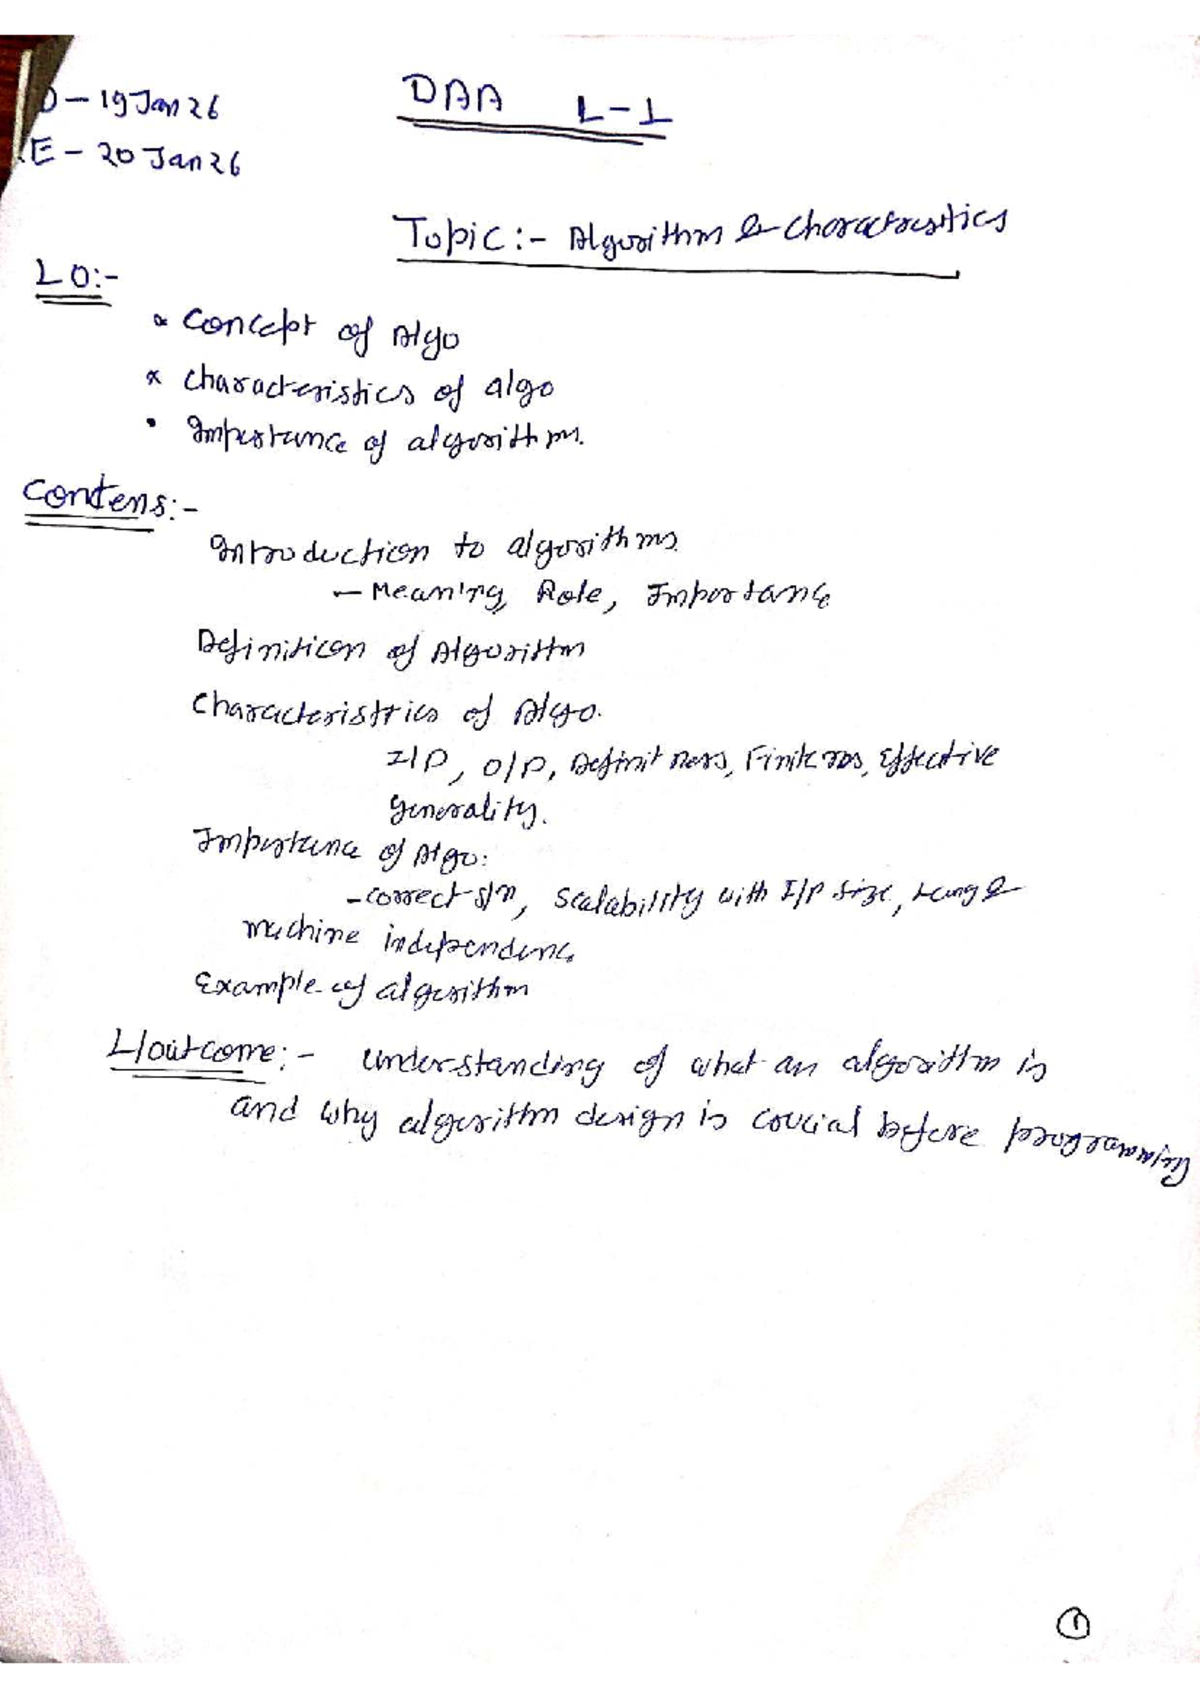 D - 19 Jan 26
DAA L-1
E - 20 Jan 26
Topic :- Algorithm & Characteristics
LO:-
* Concept of Algo
* Characteristics of algo
• Importance of algorithms.
Contens:-
Introduction to algorithms.
- Meaning, Role, Importance
Definition of Algorithm
Characteristics of Algo.
I/P, O/P, Definitness, Finiteness, Effective
Generality.
Importance of Algo:
- correct s/n, Scalability with I/P size, Lang &
machine independence
Example of algorithm
L/outcome:- Understanding of what an algorithm is
and why algorithm design is crucial before programming
1